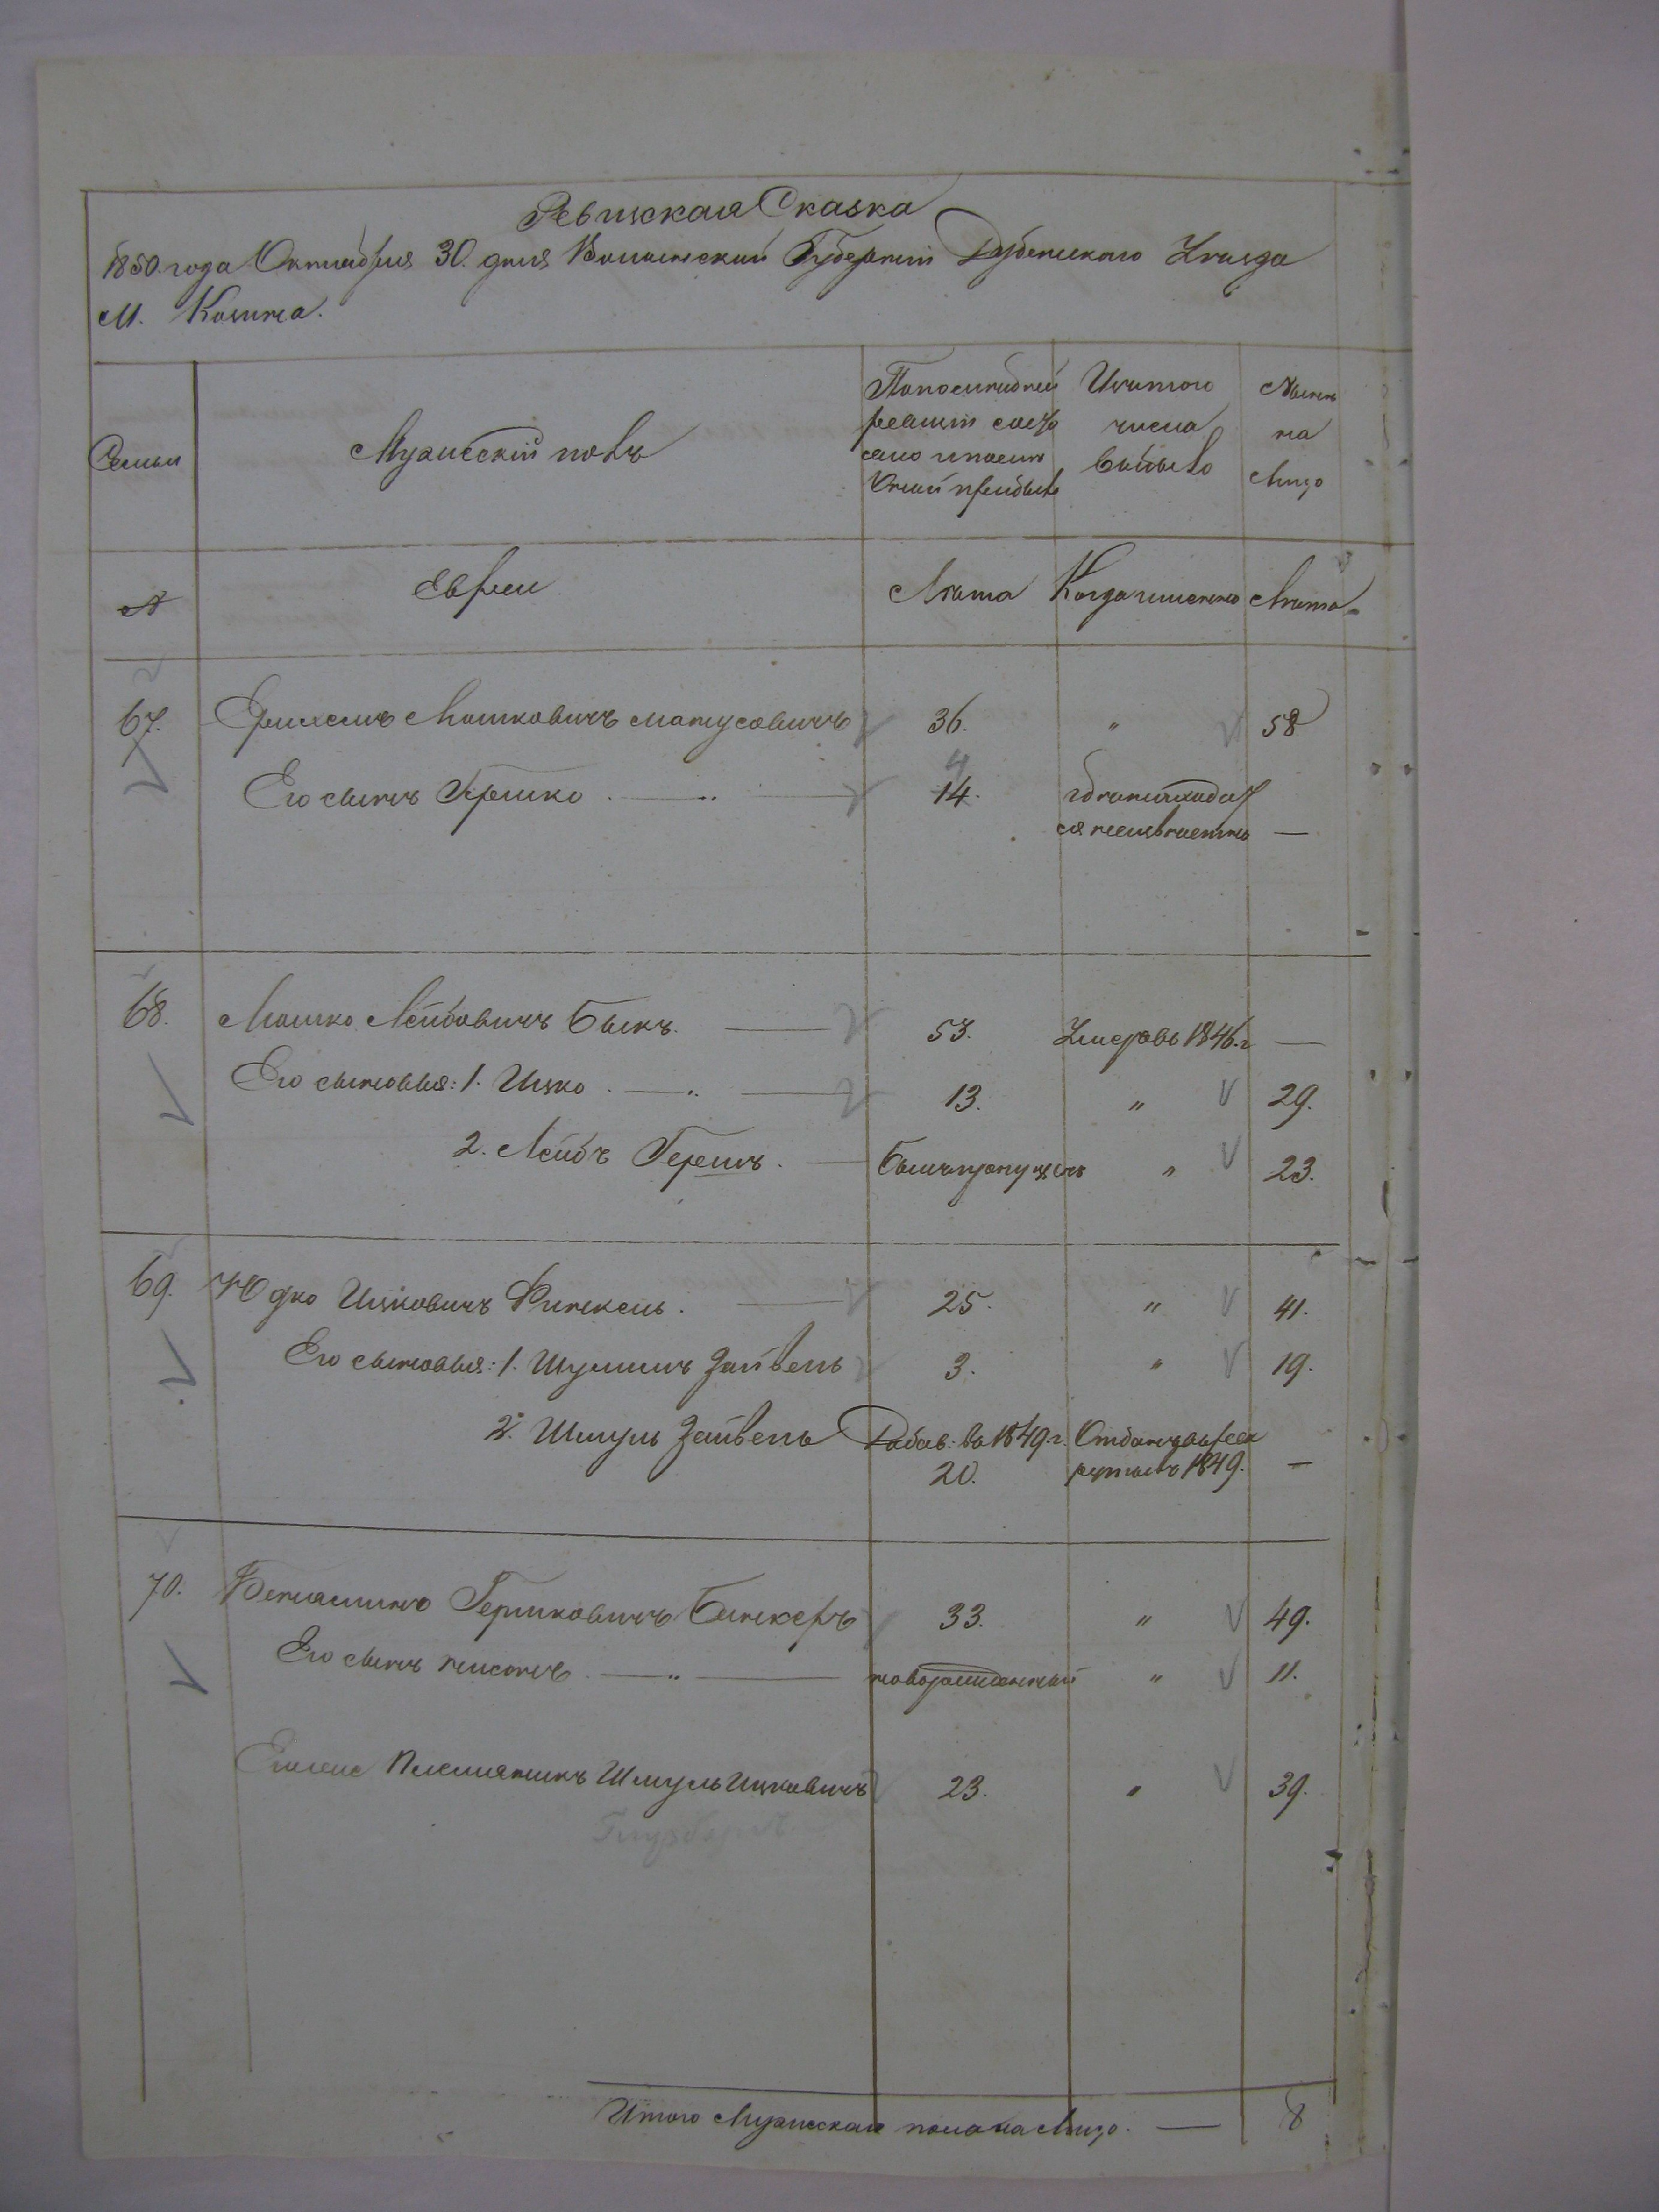 Ревизская Сказка
1850 года Октября 30. дня Волынской Губернии Дубенскаго Уезда
М. Козина.
Семьи
Мужескій полъ
По последней ревизіи состояло и после оной прибыло
Изъ того числа выбыло
Ныне на лицо
№
Евреи
Лета
Когда именно
Лета
67. Ерихемъ Мошковичъ Матусовичъ 36. " 58
Его сынъ Гершко . — " — 4 14. где находится неизвестно —
68. Мошко Лейбовичъ Быкъ. — 53. Умеръ въ 1846. г —
Его сыновья: 1. Ицко . — " — 13. " 29.
2. Лейбъ Гершъ. — былъ пропущенъ " 23.
69. Юдко Ицковичъ Финкель. — 25. " 41.
Его сыновья: 1. Шулимъ Зайвель 3. " 19.
2. Шмуль Зайвель Добав: въ 1849. г. 20. Отданъ въ рекруты въ 1849. —
70. Беньяминъ Гершковичъ Бункеръ 33. " 49.
Его сынъ Нисонъ — " — новорожденный " 11.
Его же Племянникъ Шмуль Ицковичъ 23. " 39.
Итого Мужескаго пола на Лицо. — 8